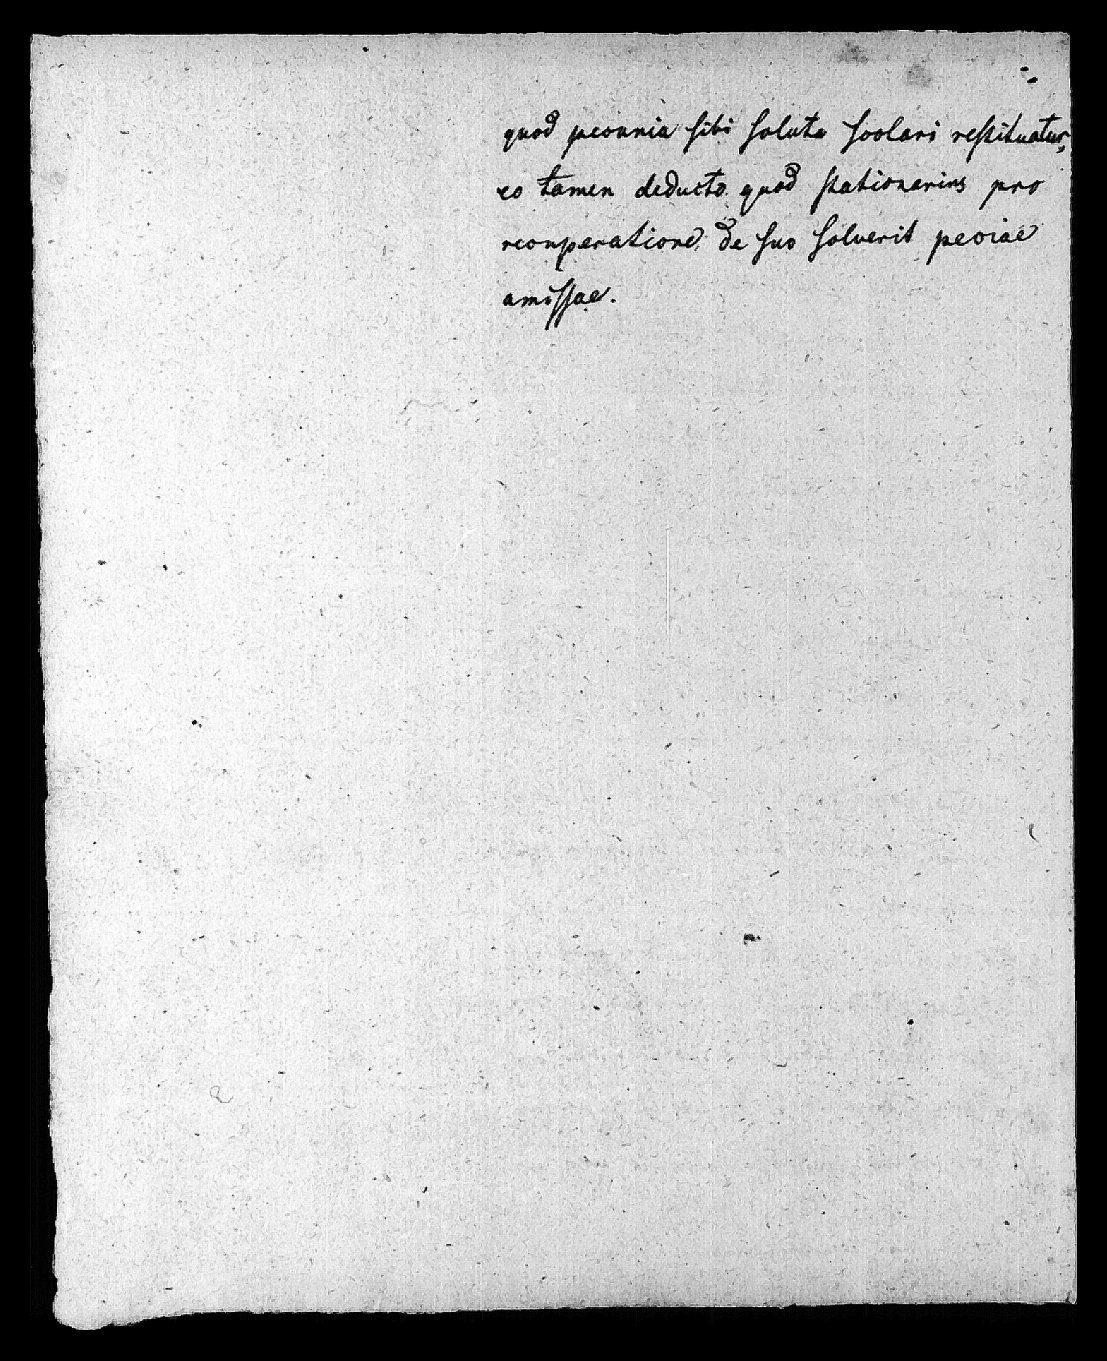 quod pecunia sibi soluta scolari restituatur,
eo tamen deducto quod stationarius pro
recuperatione de suo solverit peciae
amissae.